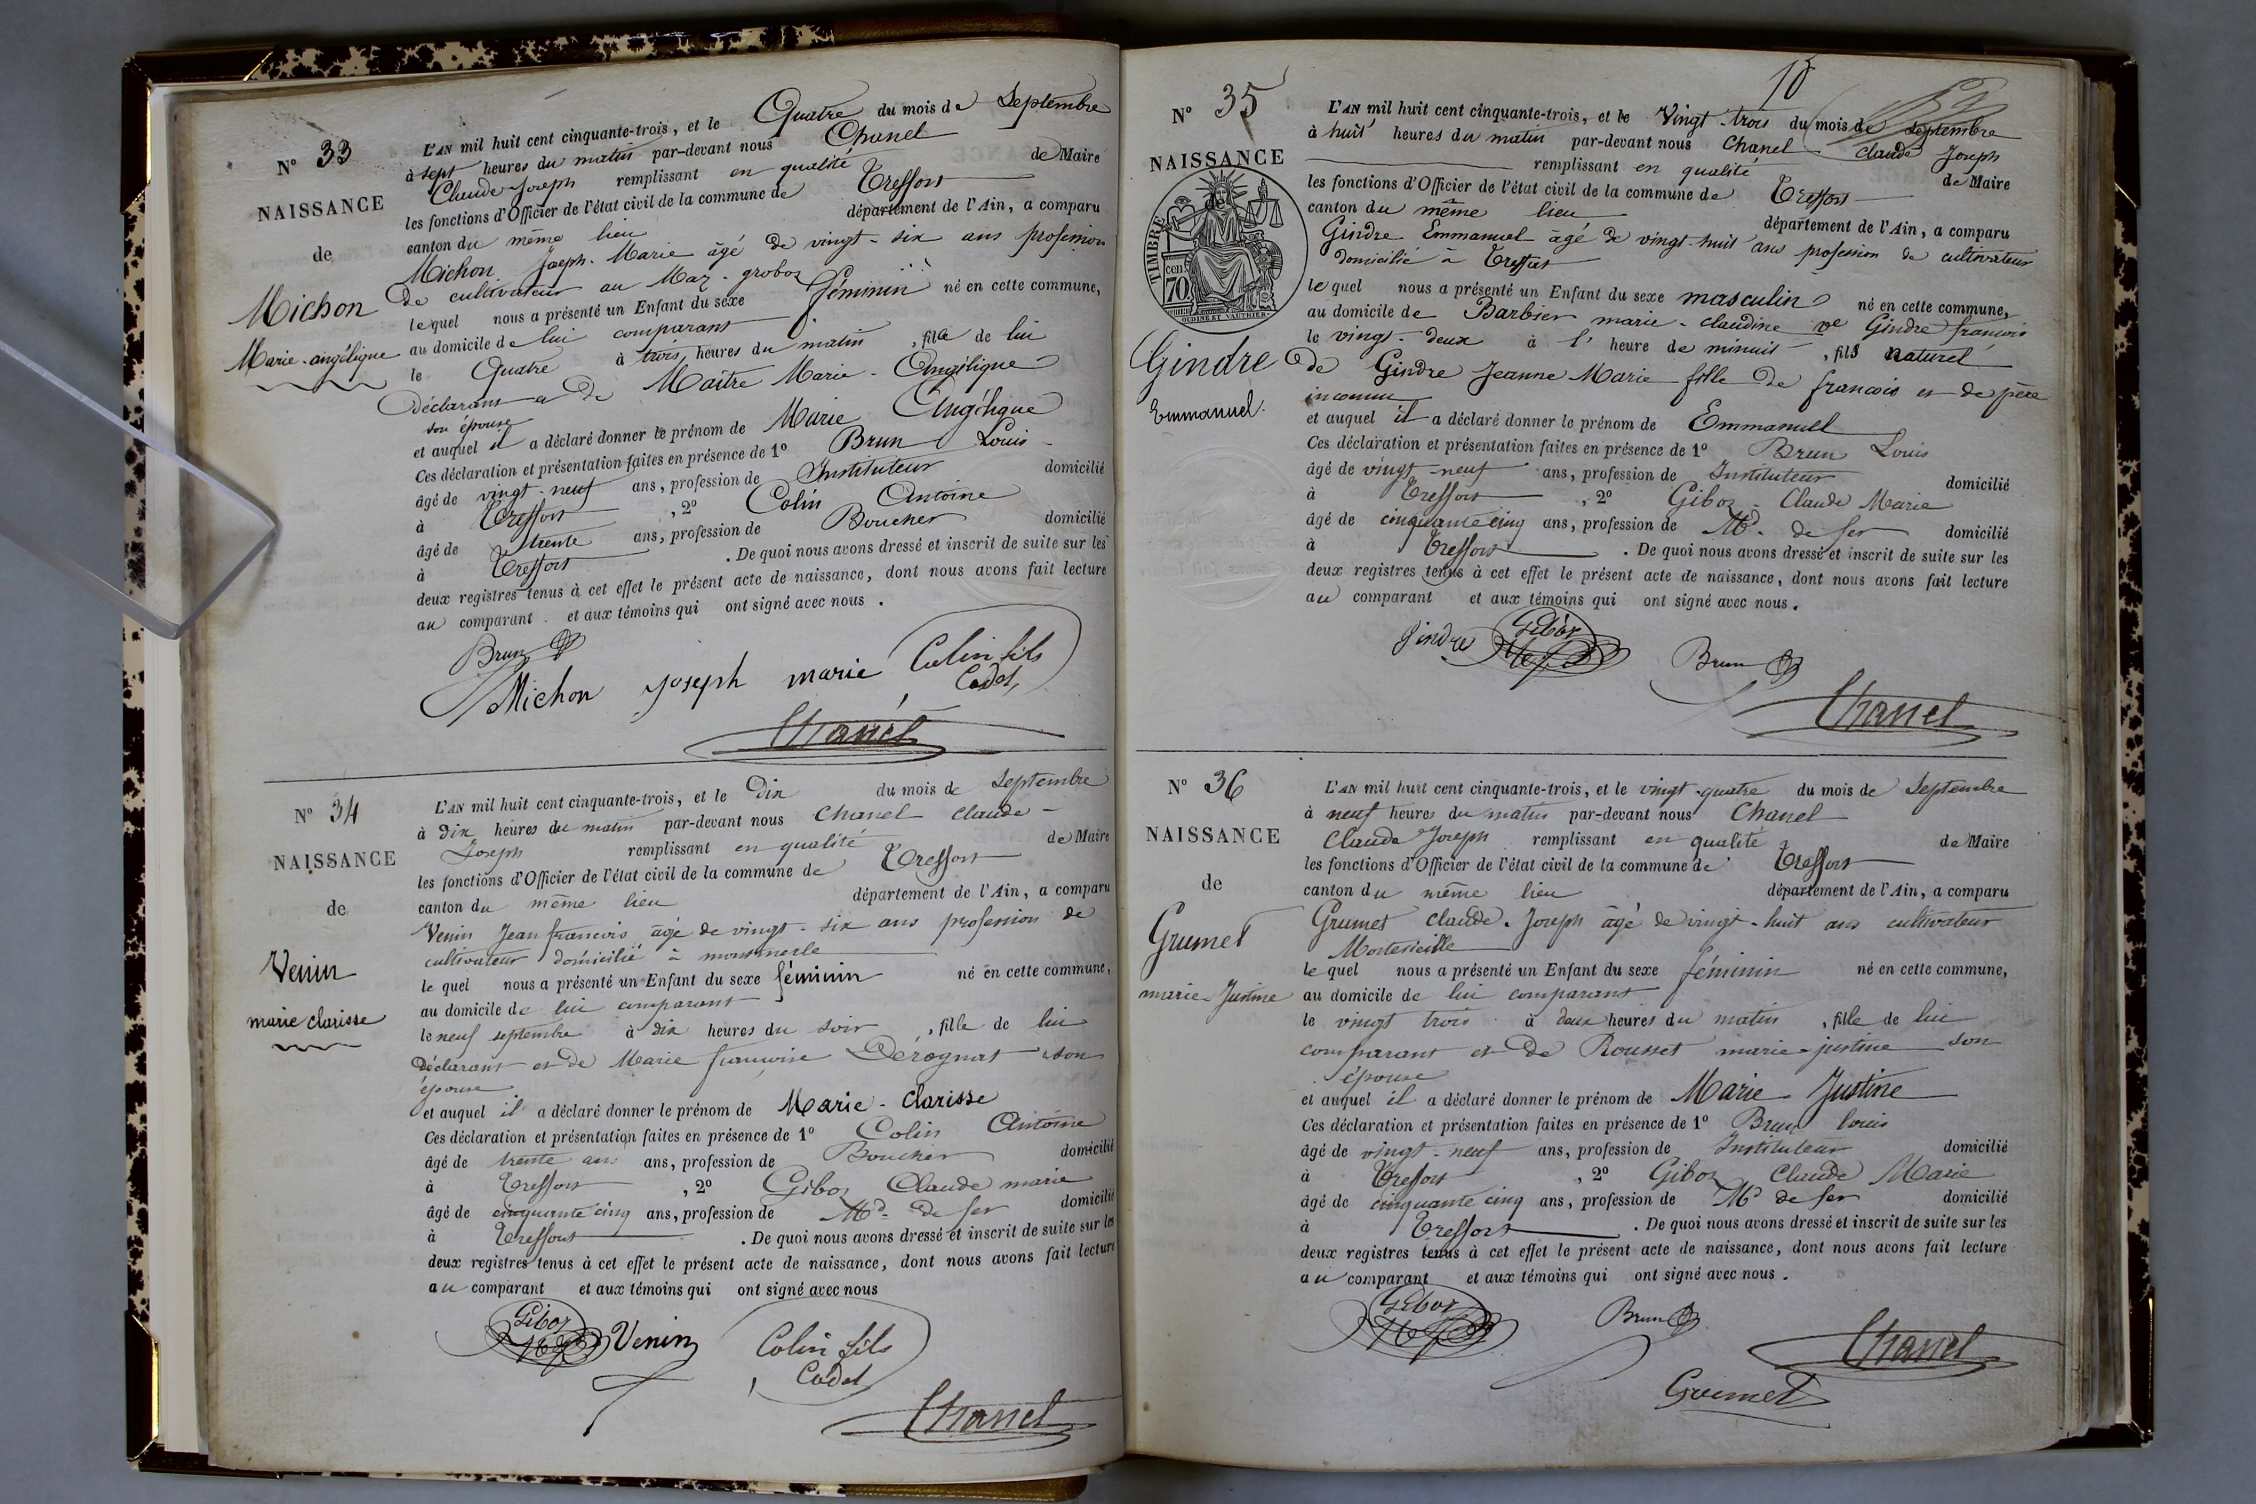 N° 33
NAISSANCE
de
Michon
Marie-angélique
L'AN mil huit cent cinquante-trois, et le Quatre du mois de Septembre
à sept heures du matin par-devant nous Chanel
Claude Joseph remplissant en qualité de Maire
les fonctions d'Officier de l'état civil de la commune de Treffort
canton du même lieu département de l'Ain, a comparu
Michon Joseph-Marie âgé de vingt-six ans profession
de cultivateur au Maz-groboz
le quel nous a présenté un Enfant du sexe féminin né en cette commune,
au domicile de lui comparant
le Quatre à trois heures du matin, fille de lui
Déclarant et de Maitre Marie-Angélique
son épouse
et auquel il a déclaré donner le prénom de Marie Angélique
Ces déclaration et présentation faites en présence de 1° Brun Louis
âgé de vingt-neuf ans, profession de Instituteur domicilié
à Treffort, 2° Colin Antoine
âgé de trente ans, profession de Boucher domicilié
à Treffort. De quoi nous avons dressé et inscrit de suite sur les
deux registres tenus à cet effet le présent acte de naissance, dont nous avons fait lecture
au comparant et aux témoins qui ont signé avec nous.
Brun
Michon joseph marie Colin fils
Cadet
Chanel
N° 34
NAISSANCE
de
Venin
marie clarisse
L'AN mil huit cent cinquante-trois, et le Dix du mois de Septembre
à Dix heures du matin par-devant nous Chanel claude-
Joseph remplissant en qualité de Maire
les fonctions d'Officier de l'état civil de la commune de Treffort
canton du même lieu département de l'Ain, a comparu
Venin Jean francois âgé de vingt-six ans profession de
cultivateur domicilié à
le quel nous a présenté un Enfant du sexe féminin né en cette commune,
au domicile de lui comparant
le neuf septembre à dix heures du soir, fille de lui
Déclarant et de Marie francoise Dérognat son
épouse
et auquel il a déclaré donner le prénom de Marie-Clarisse
Ces déclaration et présentation faites en présence de 1° Colin Antoine
âgé de trente ans ans, profession de Boucher domicilié
à Treffort, 2° Giboz Claude marie
âgé de cinquante cinq ans, profession de Md. de fer domicilié
à Treffort. De quoi nous avons dressé et inscrit de suite sur les
deux registres tenus à cet effet le présent acte de naissance, dont nous avons fait lecture
au comparant et aux témoins qui ont signé avec nous
Giboz Venin Colin fils
Cadet
Chanel
18
N° 35
NAISSANCE
de
TIMBRE
cen. 70
OUDINÉ ET VAUTHIER
Gindre
Emmanuel.
L'AN mil huit cent cinquante-trois, et le Vingt-trois du mois de Septembre
à huit heures du matin par-devant nous Chanel claude Joseph
remplissant en qualité de Maire
les fonctions d'Officier de l'état civil de la commune de Treffort
canton du même lieu département de l'Ain, a comparu
Gindre Emmanuel âgé de vingt-huit ans profession de cultivateur
domicilié à Treffort
le quel nous a présenté un Enfant du sexe masculin né en cette commune,
au domicile de Barbier marie-claudine ve Gindre francois
le vingt-deux à l' heure de minuit, fils naturel
de Gindre Jeanne Marie fille de francois et de père
inconnu
et auquel il a déclaré donner le prénom de Emmanuel
Ces déclaration et présentation faites en présence de 1° Brun Louis
âgé de vingt-neuf ans, profession de Instituteur domicilié
à Treffort, 2° Giboz-Claude Marie
âgé de cinquante cinq ans, profession de Md. de fer domicilié
à Treffort. De quoi nous avons dressé et inscrit de suite sur les
deux registres tenus à cet effet le présent acte de naissance, dont nous avons fait lecture
au comparant et aux témoins qui ont signé avec nous.
gindre Giboz Brun
Chanel
N° 36
NAISSANCE
de
Grumet
marie-Justine
L'AN mil huit cent cinquante-trois, et le vingt-quatre du mois de Septembre
à neuf heures du matin par-devant nous Chanel
Claude Joseph remplissant en qualité de Maire
les fonctions d'Officier de l'état civil de la commune de Treffort
canton du même lieu département de l'Ain, a comparu
Grumet claude-Joseph âgé de vingt-huit ans cultivateur
le quel nous a présenté un Enfant du sexe féminin né en cette commune,
au domicile de lui comparant
le vingt trois à deux heures du matin, fille de lui
comparant et de Rousset marie-justine son
épouse
et auquel il a déclaré donner le prénom de Marie Justine
Ces déclaration et présentation faites en présence de 1° Brun louis
âgé de vingt-neuf ans, profession de Instituteur domicilié
à Treffort, 2° Giboz Claude Marie
âgé de cinquante cinq ans, profession de Md de fer domicilié
à Treffort. De quoi nous avons dressé et inscrit de suite sur les
deux registres tenus à cet effet le présent acte de naissance, dont nous avons fait lecture
au comparant et aux témoins qui ont signé avec nous.
Giboz Brun Chanel
Grumet